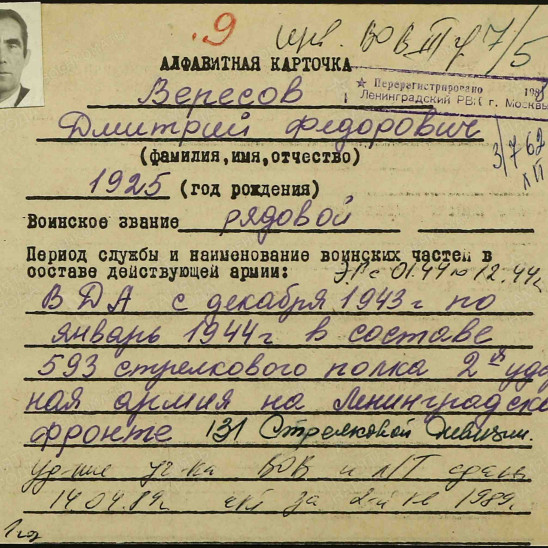 9 инв. ВОВ III гр 7/5
АЛФАВИТНАЯ КАРТОЧКА
★ Перерегистрировано 198
Ленинградский РВК г. Москвы
Вересов
Дмитрий Федорович
(фамилия,имя,отчество)
3/762
1925 (год рождения)
Воинское звание рядовой
Период службы и наименование воинских частей в
составе действующей армии: Э.Г. с 01.44 по 12.44г
В ДА с декабря 1943 г по
январь 1944 г в составе
593 стрелкового полка 2ая удар
ная армия на Ленинградско
фронте 131 Стрелковой дивизии.
уд-ние уч-ка ВОВ и
14.04.89г за 1989г.